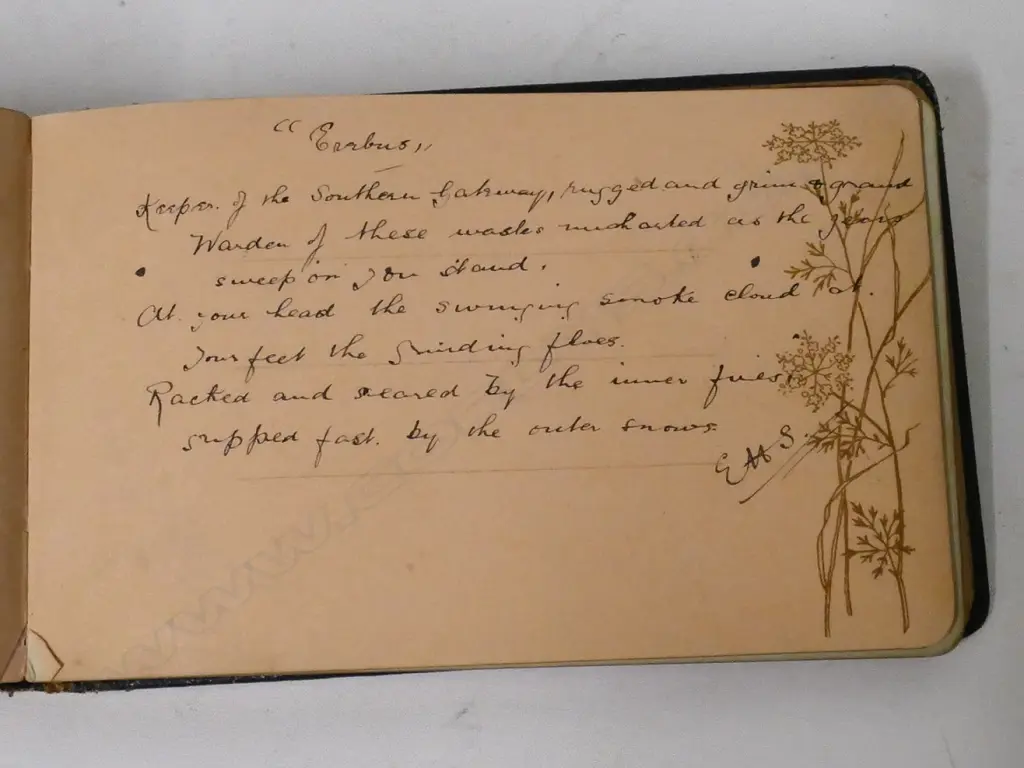 "Erebus"
Keeper of the Southern Gateway, rugged and grim & grand
Warden of these wastes uncharted as the years
sweep on you stand.
At your head the swinging smoke cloud at
your feet the grinding floes.
Racked and seared by the inner fires,
gripped fast by the outer snows
EHS
www.